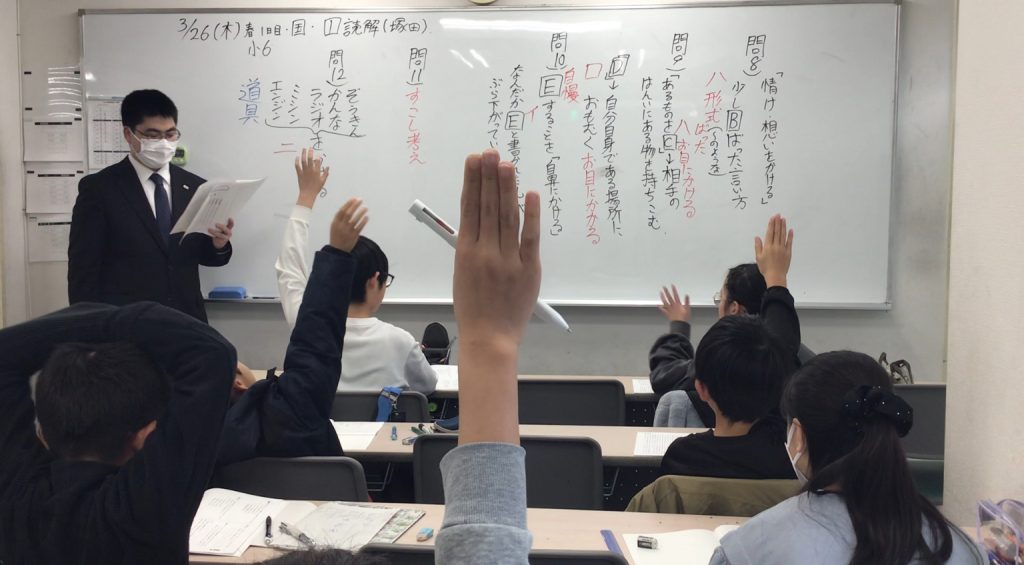 3/26(木)春1日目・国・D読解(塚田)
小6
問8)
「情け・想いをかける」
少しBばった言い方
ハ 形式(このような)
ばった
問9)
「あるものをC」→相手の
ハ お目にかける
はんいにある物を持ちこむ
D→自分自身である場所に
ロ おもむく お目にかかる
問10)
自慢
Eすることを「鼻にかける」
イ
なんだかEと書の
ぶら下がってい
問11)
すこし考え
問12)
ぞうきん
かんな
ラジオを
ミシン
エンジン
二
道具